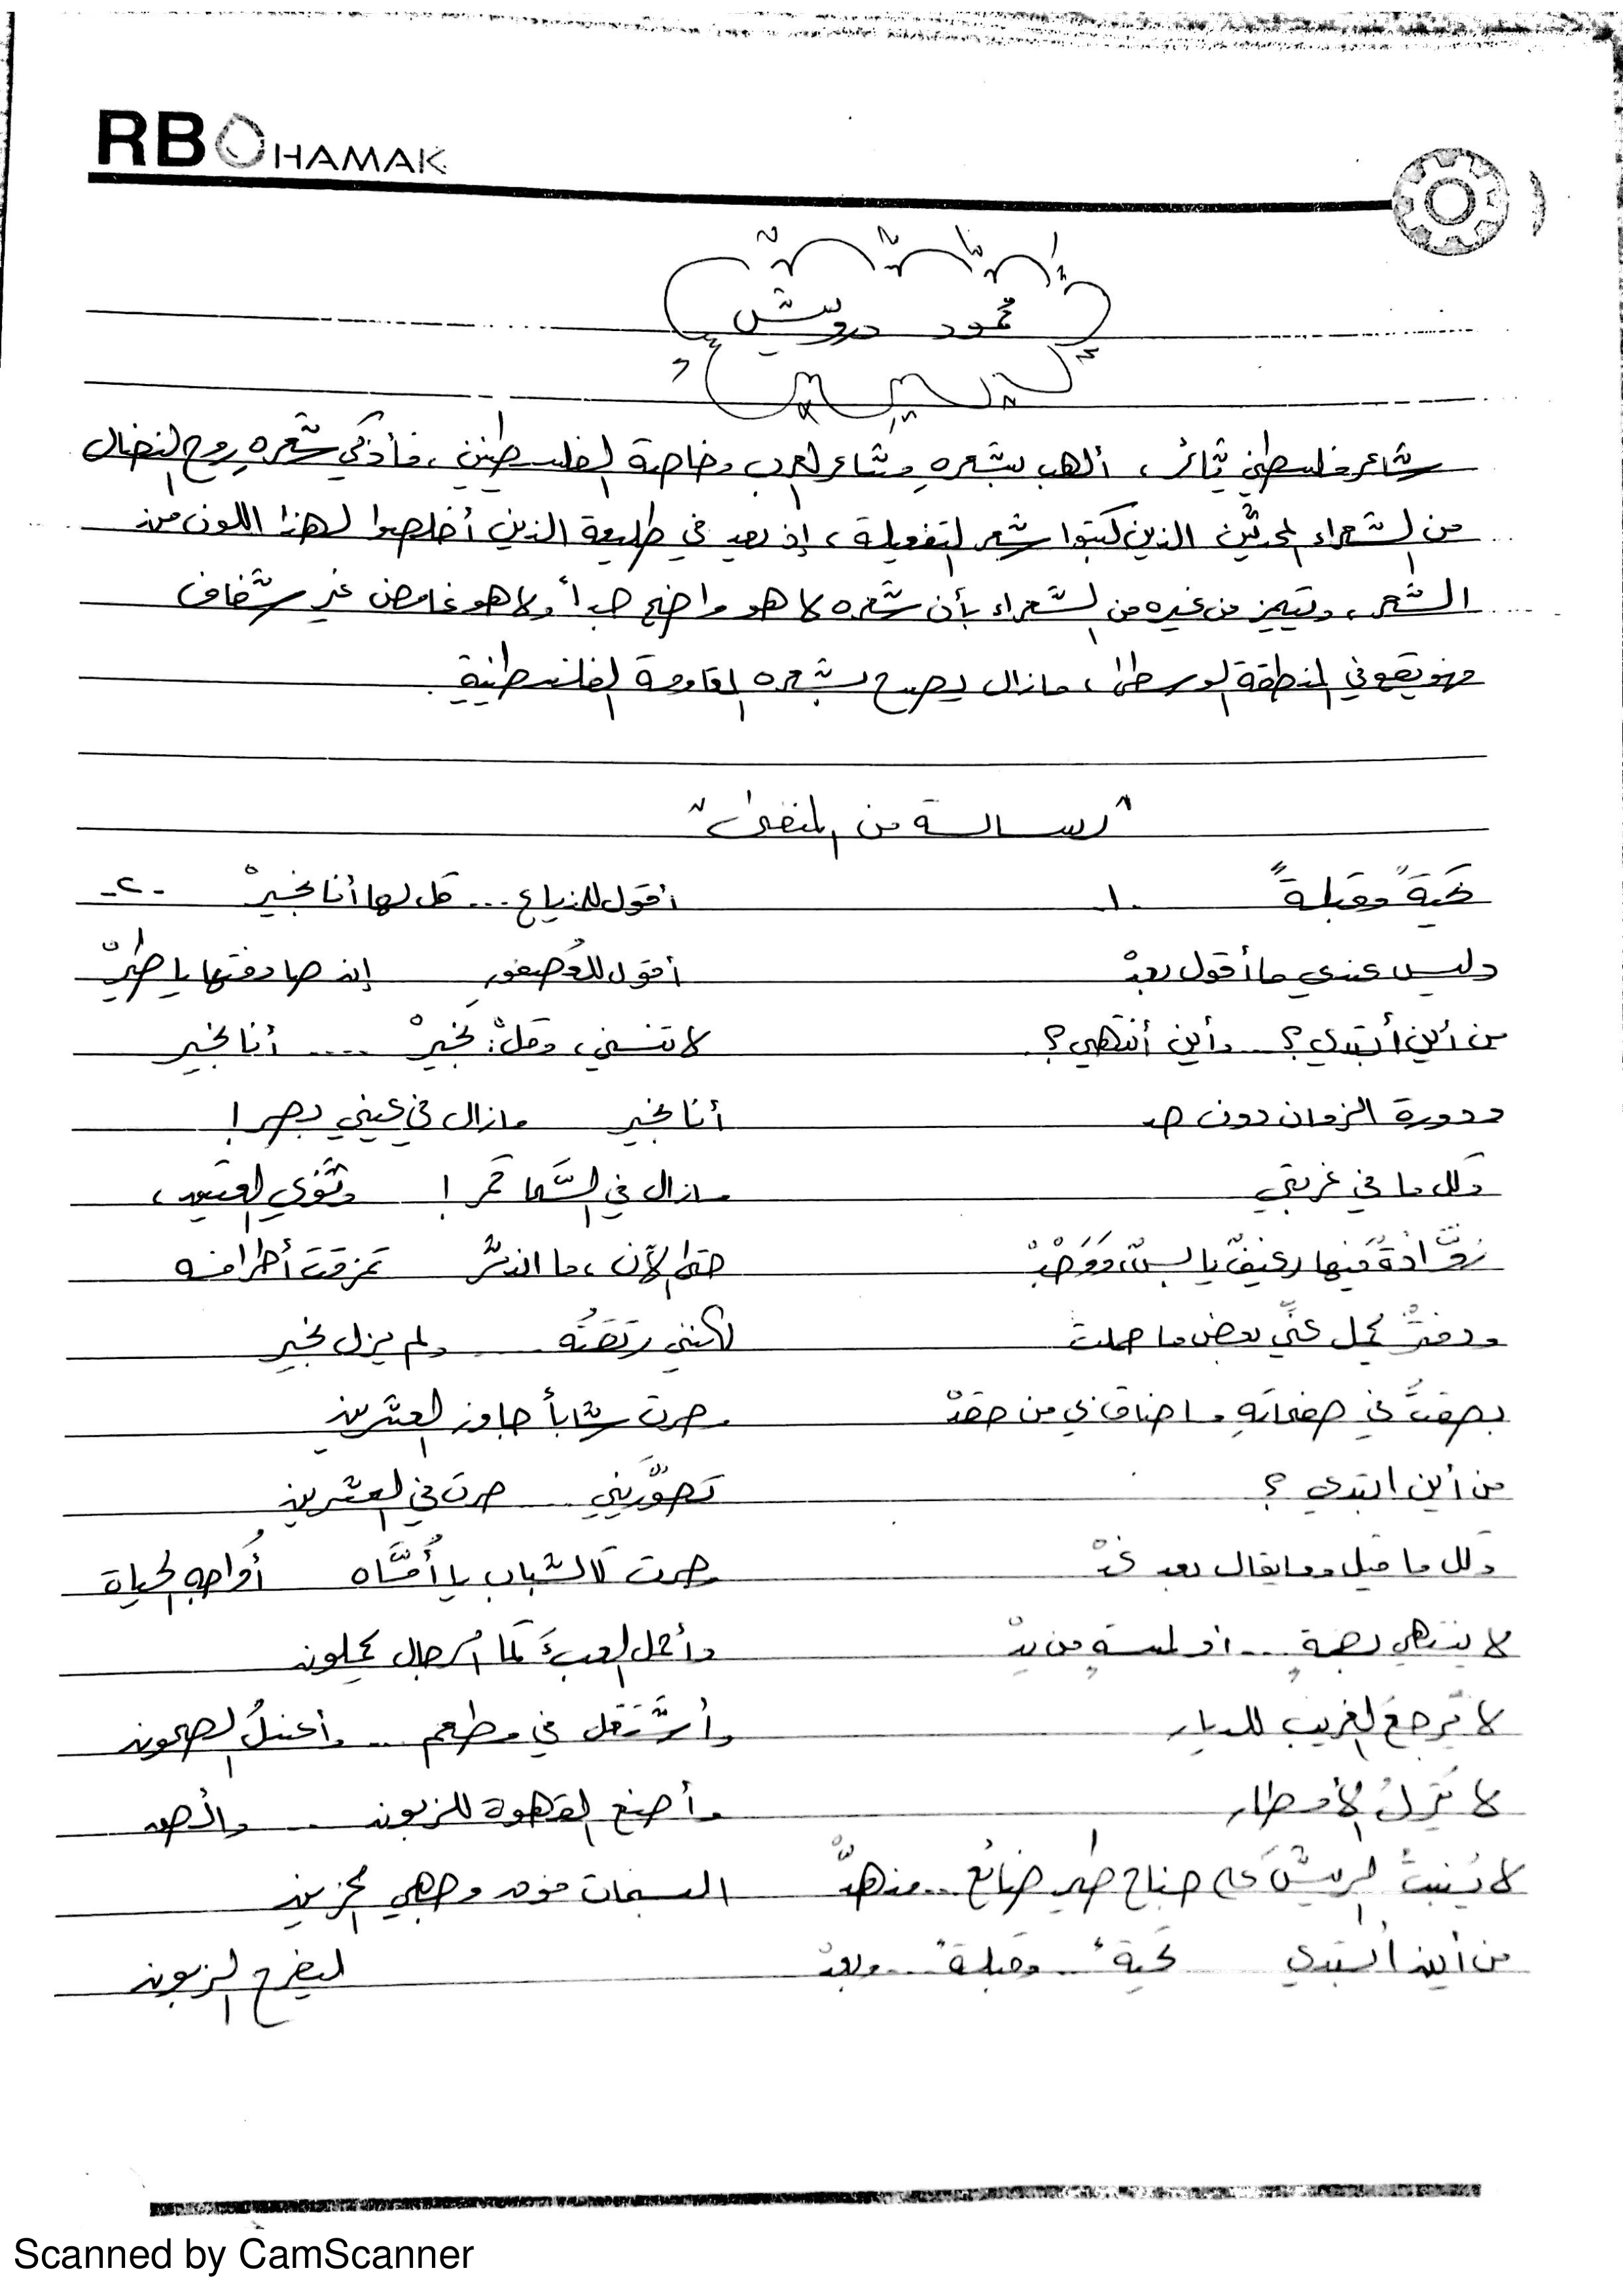 RB HAMAK
محمود درويش
شاعر فلسطيني ثائر، ألهب بشعره مشاعر العرب وخاصة الفلسطينين، فأذكى شعره روح النضال
من الشعراء المحدثين الذين كتبوا شعر التفعيلة، إذ يعد في طليعة الذين أخلصوا لهذا اللون من
الشعر، ويتميز من غيره من الشعراء بأن شعره لا هو واضح جداً ولا هو غامض غير شفاف
فهو يقع في المنطقة الوسطى، مازال يصدح بشعره المقاومة الفلسطينية.
"رسالة من المنفى"
-١-
تحيةً وقبلةً
وليس عندي ما أقول بعدْ
من أين أبتدي؟ .. وأين أنتهي؟
ودورة الزمان دون حد
وكل ما في غربتي
زوَّادةٌ فيها رغيفٌ يابسٌ، وَوَجْدْ
ودفترٌ يحمل عنِّي بعض ما حملت
بصقتُ في صفحاتهِ ما ضاق بي من حقدْ
من أين ابتدي ؟
وكل ما قيل وما يقال بعد غدْ
لا ينتهي بضمةٍ ... أو لمسةٍ من يدْ
لا يُرجعَ الغريب للديار
لا يُنزلُ الأمطار
لا يُنبتُ الريشَ على جناح طير ضائع ... منهدّْ
من أين أبتدي تحيةً .. وقبلةً .. وبعدْ
-٢-
أقول للمذياع ... قل لها أنا بخيرْ
أقول للعُصفورِ إن صادفتها يا طيرْ
لا تنسني، وقلْ: بخيرْ .... أنا بخير
أنا بخير مازال في عيني بصر!
مازال في السَّما قمر! وثوبي العتيق،
حتى الآن، ما اندثر تمزقت أطرافه
لكنني رتقتُه ... ولم يزل بخير
وصرت شاباً جاوز العشرين
تصوَّريني ... صرت في العشرين
وصرت كالشباب يا أُمَّاه أُواجه الحياة
وأحمل العبءَ كما الرجال يحملون
وأشتغل في مطعم ... وأغسلُ الصحون
وأصنع القهوة للزبون ... وأُلصق
البسمات فوق وجهي الحزين
ليفرح الزبون
Scanned by CamScanner